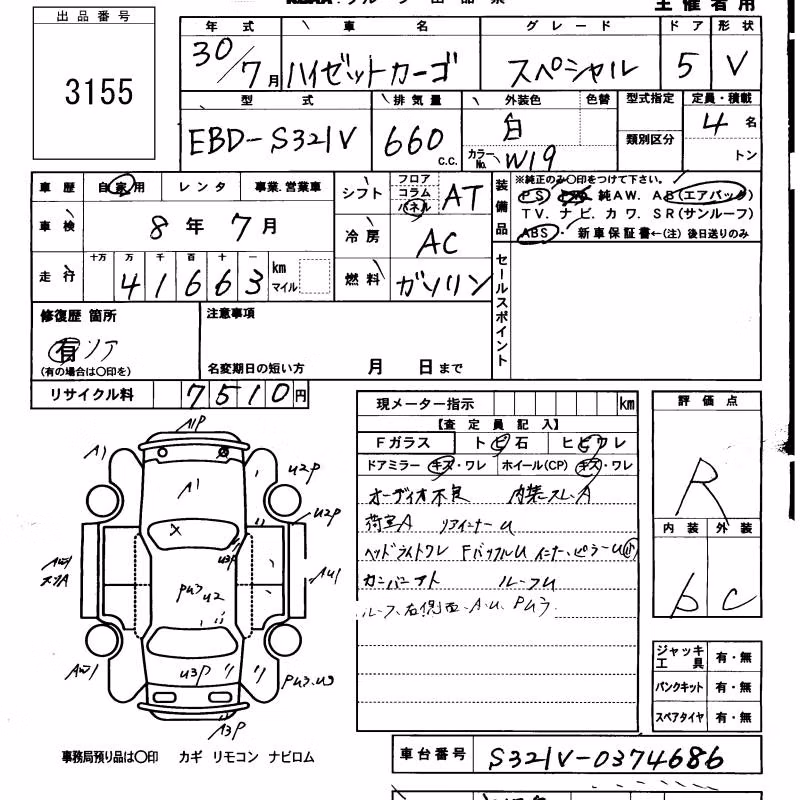 出品番号
3155
主催者用
年式 車名 グレード ドア 形状
30/7月 ハイゼットカーゴ スペシャル 5 V
型式 排気量 外装色 色替 型式指定 定員・積載
EBD-S321V 660 c.c. 白 類別区分 4名
カラーNo. W19 トン
車歴 自家用 レンタ 事業.営業車
車検 8年 7月
走行 十万 万 千 百 十 一
41663 km マイル
シフト フロア コラム パネル AT
冷房 AC
燃料 ガソリン
装備品
※純正のみ○印をつけて下さい。
PS 純AW. AB(エアバック)
TV. ナビ. カワ. SR(サンルーフ)
ABS 新車保証書←(注) 後日送りのみ
セールスポイント
修復歴 箇所
有 リア
(有の場合は○印を)
注意事項
名変期日の短い方 月 日まで
リサイクル料 7510円
現メーター指示 km
【査定員記入】
Fガラス トビ石 ヒビワレ
ドアミラー キズ・ワレ ホイール(CP) キズ・ワレ
オーディオ不良 内装スレ.A
荷室A リアインナーU
ヘッドライトワレ FバッフルU インナー.ピラーU
ルーフU
ルーフ.右側面.A.U.PU3
評価点
R
内装 外装
b C
ジャッキ工具 有・無
パンクキット 有・無
スペアタイヤ 有・無
A1P
A1
A1
U2P
U2P
U3P
PU3
U2
AW1
A41
AW1
U3P
PU3.U3
A3P
事務局預り品は○印 カギ リモコン ナビロム
車台番号 S321V-0374686